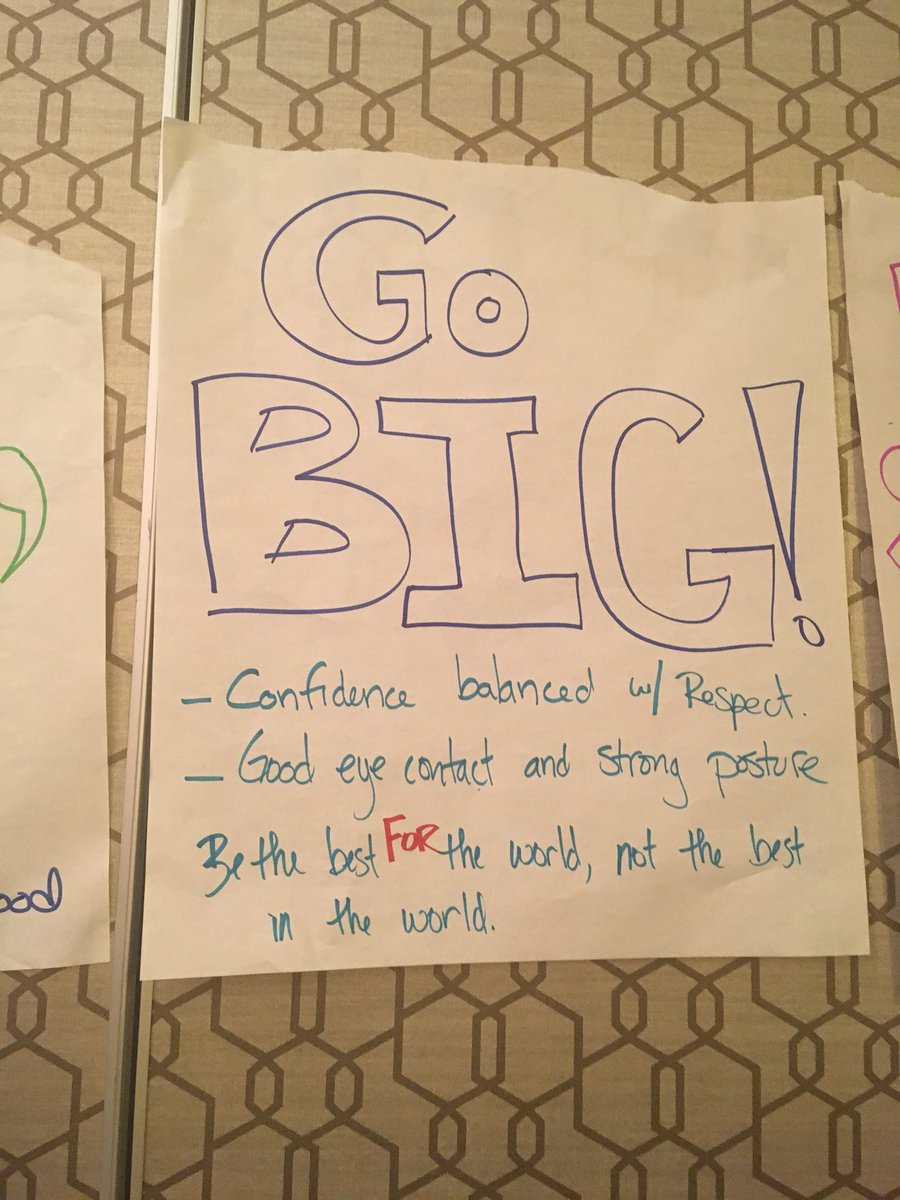 Go
BIG!
- Confidence balanced w/ Respect.
- Good eye contact and strong posture
Be the best FOR the world, not the best
in the world.
ood